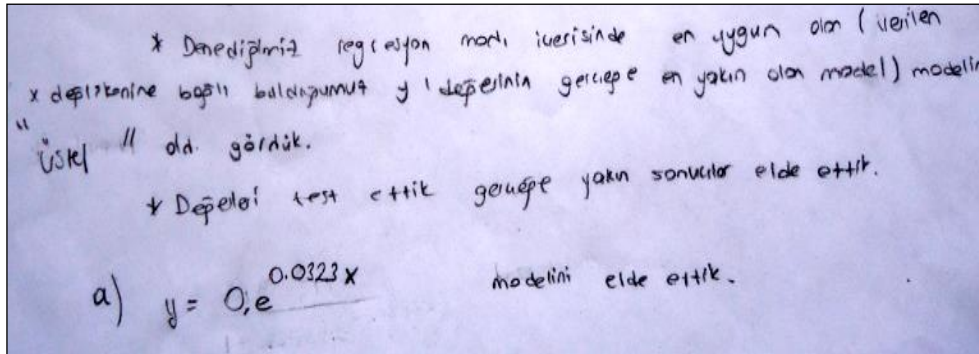 * Denediğimiz regresyon mod. içerisinde en uygun olan (verilen
x değişkenine bağlı bulduğumuz y değerinin gerçeğe en yakın olan model) modelin
"Üstel" old. gördük.
* Değerleri test ettik gerçeğe yakın sonuçlar elde ettik.
a) y = 0,e^0.0323x modelini elde ettik.